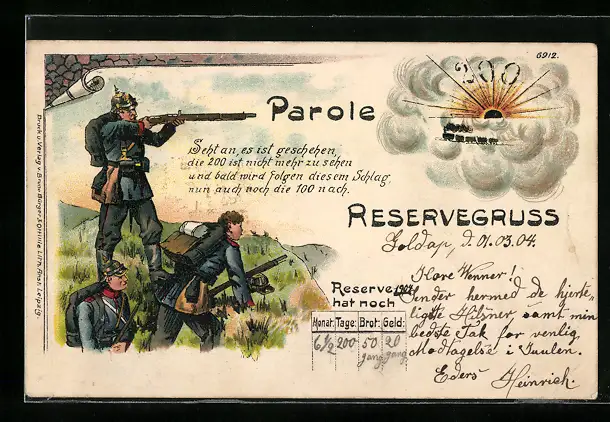 6912.
200
Parole
Seht an, es ist geschehen,
die 200 ist nicht mehr zu sehen
und bald wird folgen diesem Schlag,
nun auch noch die 100 nach.
RESERVEGRUSS
Goldap, d. 01.03.04.
Reserve
hat noch
Monat: Tage: Brot: Geld:
6 1/2 200 50 20
gang gang
Kære Venner!
Sender hermed de hjerte-
ligste Hilsner, samt min
bedste Tak for venlig
Modtagelse i Julen.
Eders Heinrich.
Druck u. Verlag v. Bruno Bürger & Ottillie Lith. Anst. Leipzig.